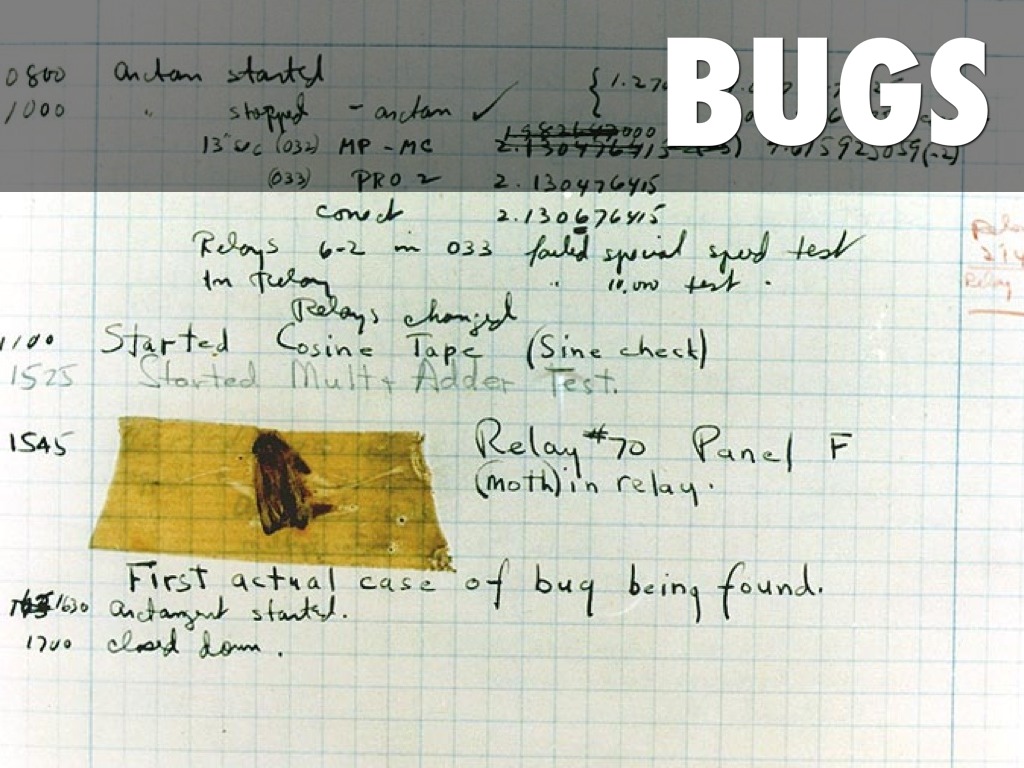 BUGS
0800 arctan started
1000 " stopped - arctan ✓
13" sec (032) MP - MC
(033) PRO 2 2.130476415
conect 2.130676415
Relays 6-2 in 033 failed special speed test
In Relay " 10,000 test .
Relays changed
1100 Started Cosine Tape (Sine check)
1525 Started Mult + Adder Test.
1545 Relay #70 Panel F
(moth) in relay.
First actual case of bug being found.
1630 arctangent started.
1700 closed down .
Relay